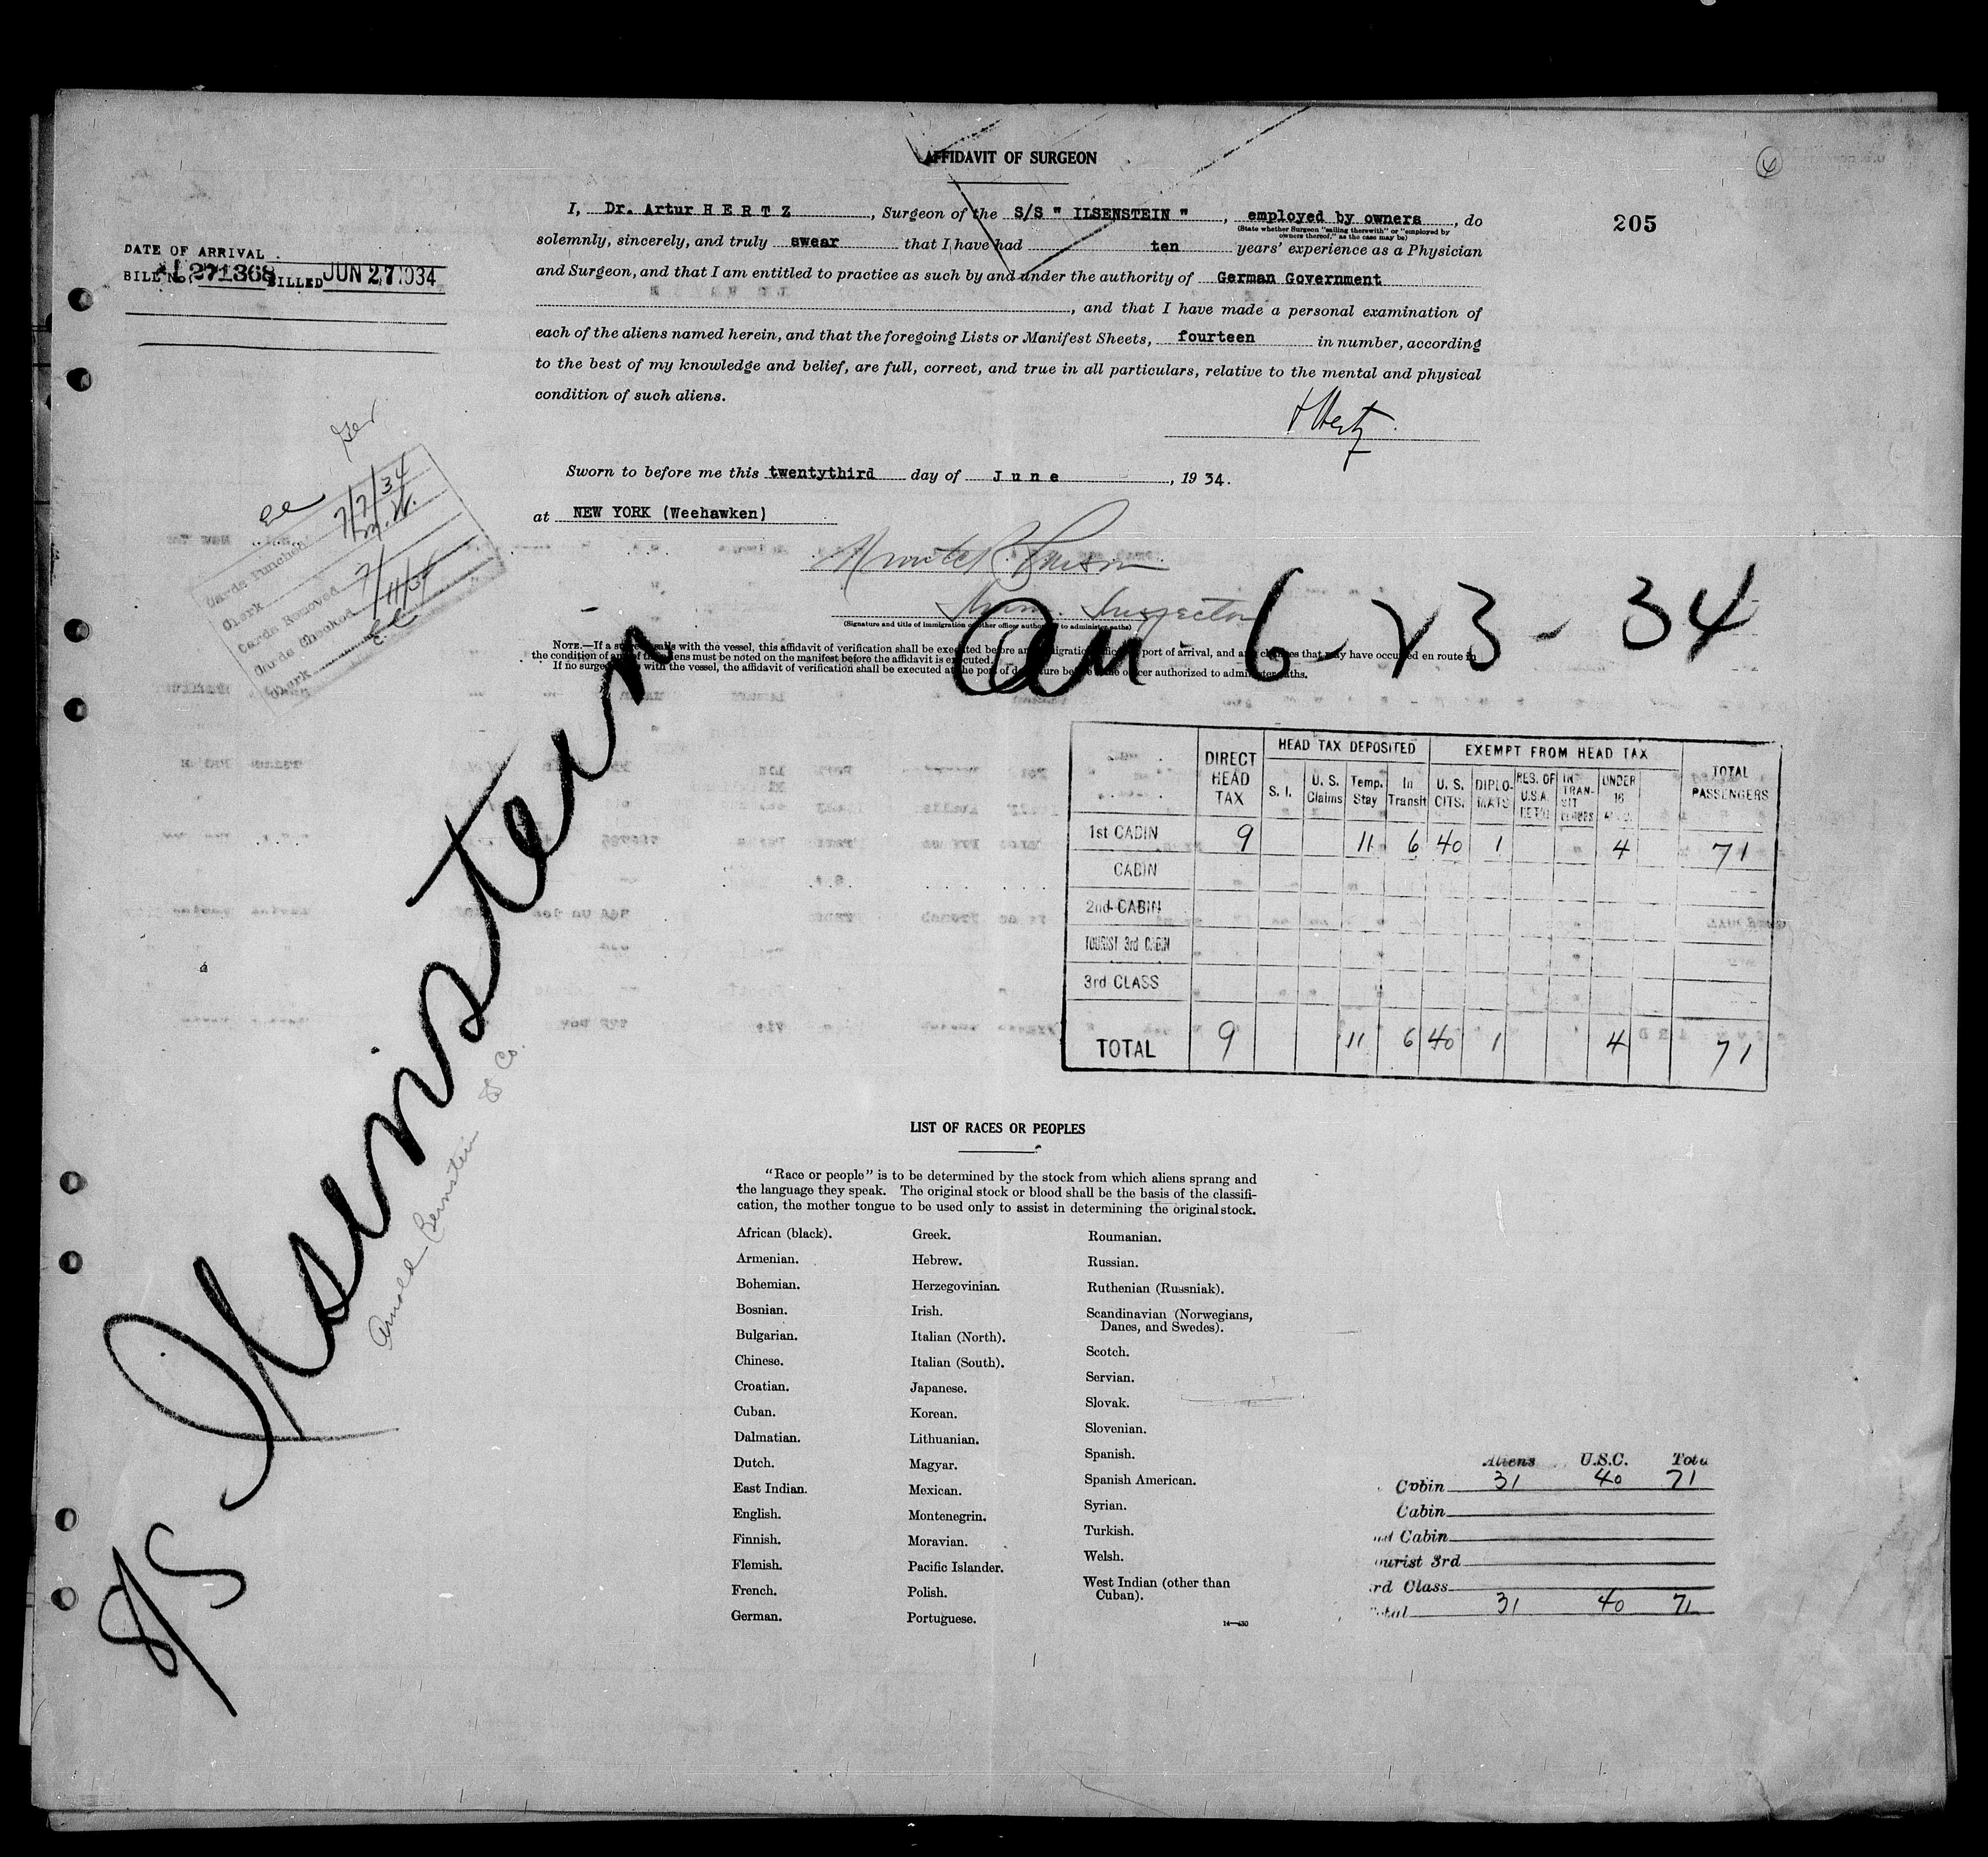 AFFIDAVIT OF SURGEON
205
I, Dr. Artur H E R T Z, Surgeon of the S/S " ILSENSTEIN ", employed by owners, do
(State whether Surgeon "sailing therewith" or "employed by
owners thereof," as the case may be)
solemnly, sincerely, and truly swear that I have had ten years' experience as a Physician
and Surgeon, and that I am entitled to practice as such by and under the authority of German Government
, and that I have made a personal examination of
each of the aliens named herein, and that the foregoing Lists or Manifest Sheets, fourteen in number, according
to the best of my knowledge and belief, are full, correct, and true in all particulars, relative to the mental and physical
condition of such aliens.
Hertz
DATE OF ARRIVAL
BILL No. 271368 BILLED JUN 27 1934
Sworn to before me this twentythird day of J u n e, 19 34.
at NEW YORK (Weehawken)
Immi. Inspector
(Signature and title of immigration or other officer authorized to administer oaths)
Cards Punched 7/7/34
Clerk M.W.
Cards Removed
Cards Checked 7/11/34
Clerk E.C.
NOTE.—If a surgeon sails with the vessel, this affidavit of verification shall be executed before an immigration officer at port of arrival, and any changes that may have occurred en route in
the condition of any of the aliens must be noted on the manifest before the affidavit is executed.
If no surgeon sails with the vessel, the affidavit of verification shall be executed at the port of departure before some officer authorized to administer oaths.
arr 6-23-34
S/S Ilsenstein
Arnold Bernstein & Co.
DIRECT HEAD TAX
HEAD TAX DEPOSITED
EXEMPT FROM HEAD TAX
TOTAL PASSENGERS
S. I. U. S. Claims Temp. Stay In Transit U. S. CITS. DIPLO-MATS RES. OF U.S.A. RET'D IN TRAN-SIT UNDER 16
1st CABIN 9 11 6 40 1 4 71
CABIN
2nd CABIN
TOURIST 3rd CABIN
3rd CLASS
TOTAL 9 11 6 40 1 4 71
LIST OF RACES OR PEOPLES
"Race or people" is to be determined by the stock from which aliens sprang and
the language they speak. The original stock or blood shall be the basis of the classifi-
cation, the mother tongue to be used only to assist in determining the original stock.
African (black).
Armenian.
Bohemian.
Bosnian.
Bulgarian.
Chinese.
Croatian.
Cuban.
Dalmatian.
Dutch.
East Indian.
English.
Finnish.
Flemish.
French.
German.
Greek.
Hebrew.
Herzegovinian.
Irish.
Italian (North).
Italian (South).
Japanese.
Korean.
Lithuanian.
Magyar.
Mexican.
Montenegrin.
Moravian.
Pacific Islander.
Polish.
Portuguese.
Roumanian.
Russian.
Ruthenian (Russniak).
Scandinavian (Norwegians,
Danes, and Swedes).
Scotch.
Servian.
Slovak.
Slovenian.
Spanish.
Spanish American.
Syrian.
Turkish.
Welsh.
West Indian (other than
Cuban).
14—430
Aliens U.S.C. Tota
Cabin 31 40 71
Cabin
Cabin
ourist 3rd
rd Class
otal 31 40 71